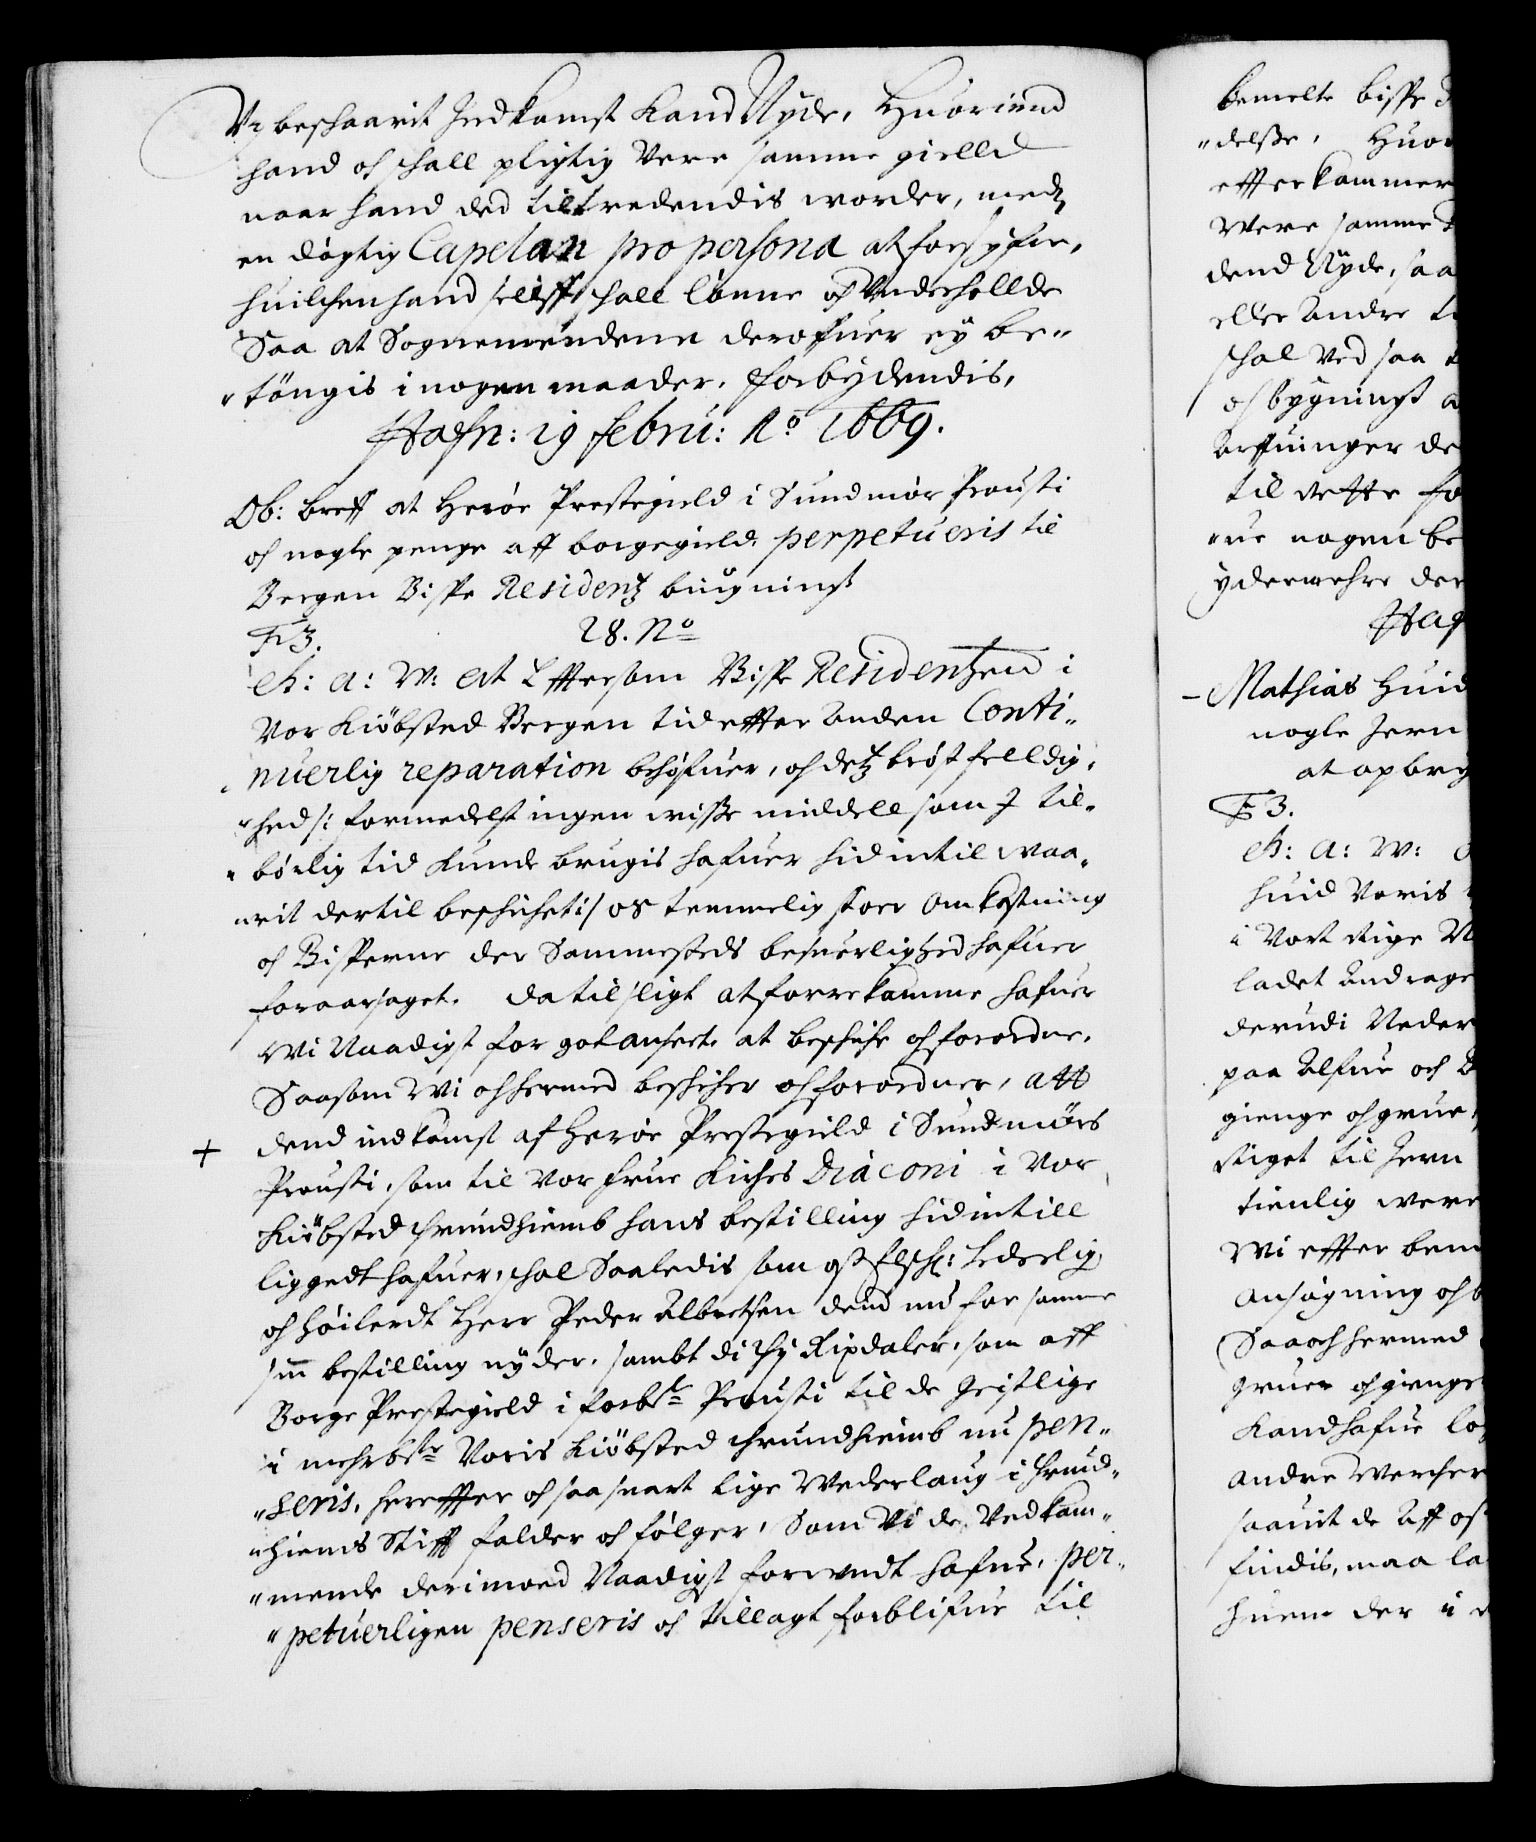 Vj beschaarit Indkomst Kand Nyde, Huorimod
hand oc schall pligtig Vere samme gielld
naar hand ded tiltredendis worder, medz
en døgtig Capelan pro persona at forsyfne,
huilchen hand sielff schall lønne oc Underhollde
Saa at Sognemendene derofuer ey be„
„tøngis i nogen maader. Forbydendis,
Hafn: 19 Febru: Ao 1669.
Ob: breff at Herøe Prestegield i Sundmør Prousti
oc nogle penge aff borgegield perpetueris til
Bergen Bispe Residentz biugningh
F3. 28. No
C5: A: W: At Efftersom Bispe Residentzen i
Vor Kiøbsted Bergen tid effter anden Conti„
nuerlig reparation behøfuer, oc detz brøstfelldig„
„hed /: formedelst ingen wisse middell som I til„
„børlig tid kunde brugis hafuer hidintil waa„
„rit dertil beschichet :/ os temmelig stoer Omkostning
oc Bisperne der Sammesteds besuerlighed hafuer
foraarsaget. Da til sligt at forrekomme hafuer
Wi Naadigst for got anseet at beschiche oc forordne,
Saasom Wi oc hermed beschicher oc forordner, Att
+ dend indkomst af Herøe Prestegield i Sundmørs
Prousti, som til Vor Frue Kirches Diaconi i Vor
Kiøbsted Trundhiemb hans bestilling hidintill
liggedt hafuer, schal Saaledis som oss Elschel: Hederlig
oc høilerdt Herr Peder Albretsen dend nu for samme
sin bestilling nyder, sambt di Rixdaler, som aff
Borge Prestegield i forbte Prousti til de Geistlige
i mehrbte Voris Kiøbsted Trundhiemb nu pen„
„seris, hereffter oc saasnart lige Wederlaug i Trund„
„hiems Stifft falder oc følger, Som Vi de Vedkom„
„mende derimoed Naadigst forundt hafue, per„
„petuerligen penseris oc tillagt forblifue til
bemelte bispe
„delsse, Huor
effterkommer
Were samme
dend Nyde, saa
eller Andre
schal Ved saa
oc bygningh
Arffuinger de
til dette
„ue nogen be
ydermehre der
Haf
– Mathias Huid
nogle Jern
at opbry
F3.
C5: A: W:
huid Voris
i Vort Rige
ladet Andrage
derudi Neder
paa Elfue oc
gienge oc grue
Riget til Jern
tienlig were
Wi effter bem
ansøgning oc
Saa oc hermed
gruer oc gienge
Kand hafue
andre Wercher
saauit de Aff
findis, maa la
huem der i